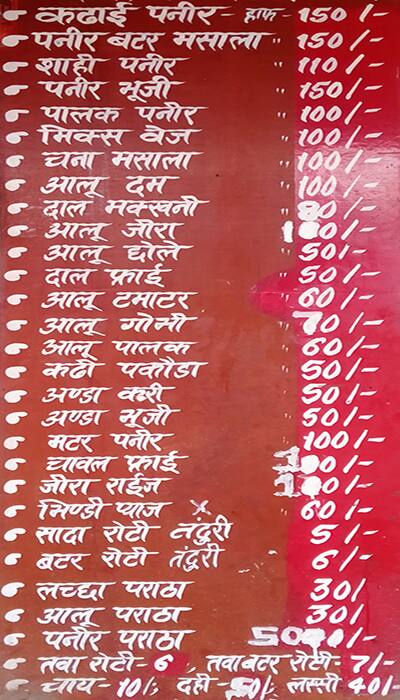 कढाई पनीर - हाफ - 150/-
पनीर बटर मसाला " 150/-
शाही पनीर " 110/-
पनीर भूजी " 150/-
पालक पनीर " 100/-
मिक्स वेज " 100/-
चना मसाला " 100/-
आलू दम " 100/-
दाल मक्खनी " 80/-
आलू जीरा 100/-
आलू छोले " 50/-
दाल फ्राई " 50/-
आलू टमाटर " 60/-
आलू गोभी 70/-
आलू पालक " 60/-
कढी पकौडा " 50/-
अण्डा करी " 50/-
अण्डा भूजी " 50/-
मटर पनीर " 100/-
चावल फ्राई 100/-
जीरा राईज /-
भिण्डी प्याज x " 60/-
सादा रोटी तंदुरी 5/-
बटर रोटी तंदुरी 6/-
लच्छा पराठा 30/
आलू पराठा 30/
पनीर पराठा 50/-
तवा रोटी - 6, तवा बटर रोटी - 7/-
चाय - 10/- दही - 50/- लस्सी 40/-